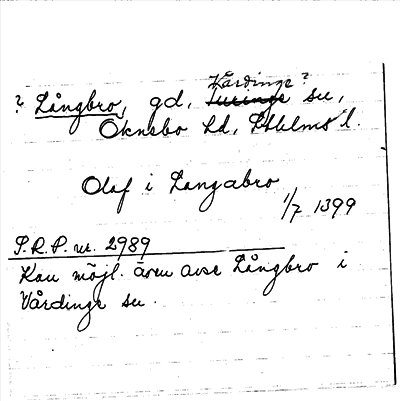 Vårdinge?
? Långbro, gd, Turinge sn,
Öknebo hd, Sthlms l.
Olof i Langabro
1/7 1399
S.R.P. nr. 2989
Kan möjl. även avse Långbro i
Vårdinge sn.